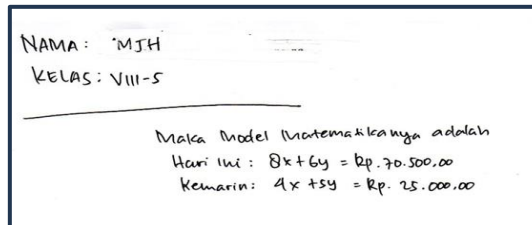 NAMA: MJH
KELAS: VIII-5
Maka Model Matematikanya adalah
Hari ini : 8x + 6y = Rp. 70.500,00
Kemarin : 4x + 5y = Rp. 25.000,00